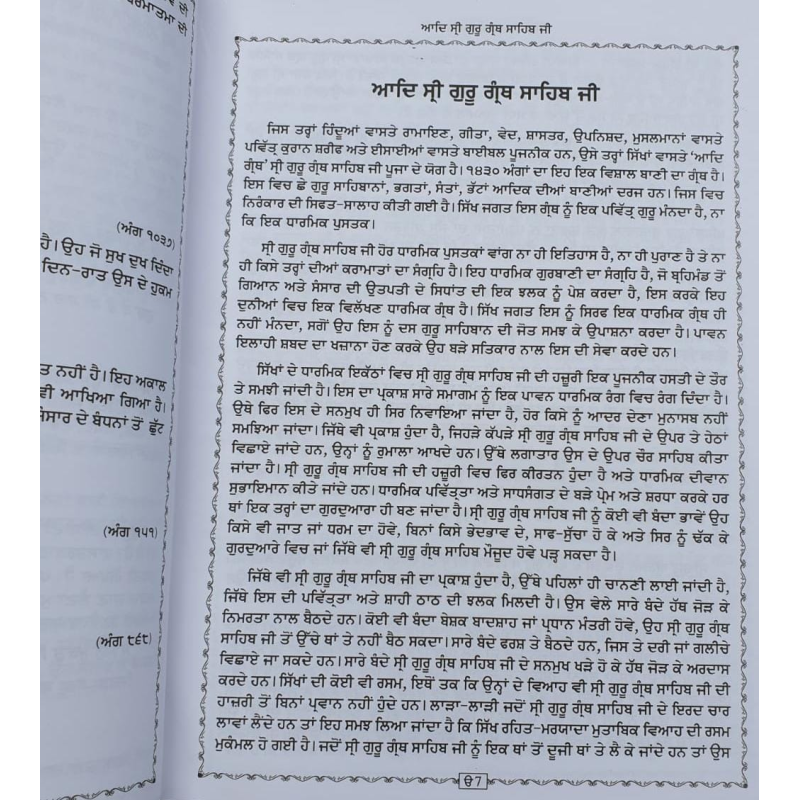 ਰਮਾਤਮਾ ਦੀ
(ਅੰਗ ੧੦੩੭)
ਹੈ। ਉਹ ਜੋ ਸੁਖ ਦੁਖ ਦਿੰਦਾ
ਦਿਨ-ਰਾਤ ਉਸ ਦੇ ਹੁਕਮ
ਤ ਨਹੀਂ ਹੈ। ਇਹ ਅਕਾਲ
ਵੀ ਆਖਿਆ ਗਿਆ ਹੈ।
ਸਾਰ ਦੇ ਬੰਧਨਾਂ ਤੋਂ ਛੁੱਟ
(ਅੰਗ ੧੫੧)
(ਅੰਗ ੮੬੮)
ਆਦਿ ਸ੍ਰੀ ਗੁਰੂ ਗ੍ਰੰਥ ਸਾਹਿਬ ਜੀ
ਆਦਿ ਸ੍ਰੀ ਗੁਰੂ ਗ੍ਰੰਥ ਸਾਹਿਬ ਜੀ
ਜਿਸ ਤਰ੍ਹਾਂ ਹਿੰਦੂਆਂ ਵਾਸਤੇ ਰਾਮਾਇਣ, ਗੀਤਾ, ਵੇਦ, ਸ਼ਾਸਤਰ, ਉਪਨਿਸ਼ਦ, ਮੁਸਲਮਾਨਾਂ ਵਾਸਤੇ
ਪਵਿੱਤ੍ਰ ਕੁਰਾਨ ਸ਼ਰੀਫ ਅਤੇ ਈਸਾਈਆਂ ਵਾਸਤੇ ਬਾਈਬਲ ਪੂਜਨੀਕ ਹਨ, ਉਸੇ ਤਰ੍ਹਾਂ ਸਿੱਖਾਂ ਵਾਸਤੇ ‘ਆਦਿ
ਗ੍ਰੰਥ’ ਸ੍ਰੀ ਗੁਰੂ ਗ੍ਰੰਥ ਸਾਹਿਬ ਜੀ ਪੂਜਾ ਦੇ ਯੋਗ ਹੈ। ੧੪੩੦ ਅੰਗਾਂ ਦਾ ਇਹ ਇਕ ਵਿਸ਼ਾਲ ਬਾਣੀ ਦਾ ਗ੍ਰੰਥ ਹੈ।
ਇਸ ਵਿਚ ਛੇ ਗੁਰੂ ਸਾਹਿਬਾਨਾਂ, ਭਗਤਾਂ, ਸੰਤਾਂ, ਭੱਟਾਂ ਆਦਿਕ ਦੀਆਂ ਬਾਣੀਆਂ ਦਰਜ ਹਨ। ਜਿਸ ਵਿਚ
ਨਿਰੰਕਾਰ ਦੀ ਸਿਫਤ-ਸਾਲਾਹ ਕੀਤੀ ਗਈ ਹੈ। ਸਿੱਖ ਜਗਤ ਇਸ ਗ੍ਰੰਥ ਨੂੰ ਇਕ ਪਵਿੱਤ੍ਰ ਗੁਰੂ ਮੰਨਦਾ ਹੈ, ਨਾ
ਕਿ ਇਕ ਧਾਰਮਿਕ ਪੁਸਤਕ।
ਸ੍ਰੀ ਗੁਰੂ ਗ੍ਰੰਥ ਸਾਹਿਬ ਜੀ ਹੋਰ ਧਾਰਮਿਕ ਪੁਸਤਕਾਂ ਵਾਂਗ ਨਾ ਹੀ ਇਤਿਹਾਸ ਹੈ, ਨਾ ਹੀ ਪੁਰਾਣ ਹੈ ਤੇ ਨਾ
ਹੀ ਕਿਸੇ ਤਰ੍ਹਾਂ ਦੀਆਂ ਕਰਾਮਾਤਾਂ ਦਾ ਸੰਗ੍ਰਹਿ ਹੈ। ਇਹ ਧਾਰਮਿਕ ਗੁਰਬਾਣੀ ਦਾ ਸੰਗ੍ਰਹਿ ਹੈ, ਜੋ ਬ੍ਰਹਿਮੰਡ ਤੋਂ
ਗਿਆਨ ਅਤੇ ਸੰਸਾਰ ਦੀ ਉਤਪਤੀ ਦੇ ਸਿਧਾਂਤ ਦੀ ਇਕ ਝਲਕ ਨੂੰ ਪੇਸ਼ ਕਰਦਾ ਹੈ, ਇਸ ਕਰਕੇ ਇਹ
ਦੁਨੀਆਂ ਵਿਚ ਇਕ ਵਿਲੱਖਣ ਧਾਰਮਿਕ ਗ੍ਰੰਥ ਹੈ। ਸਿੱਖ ਜਗਤ ਇਸ ਨੂੰ ਸਿਰਫ ਇਕ ਧਾਰਮਿਕ ਗ੍ਰੰਥ ਹੀ
ਨਹੀਂ ਮੰਨਦਾ, ਸਗੋਂ ਉਹ ਇਸ ਨੂੰ ਦਸ ਗੁਰੂ ਸਾਹਿਬਾਨ ਦੀ ਜੋਤ ਸਮਝ ਕੇ ਉਪਾਸ਼ਨਾ ਕਰਦਾ ਹੈ। ਪਾਵਨ
ਇਲਾਹੀ ਸ਼ਬਦ ਦਾ ਖਜ਼ਾਨਾ ਹੋਣ ਕਰਕੇ ਉਹ ਬੜੇ ਸਤਿਕਾਰ ਨਾਲ ਇਸ ਦੀ ਸੇਵਾ ਕਰਦੇ ਹਨ।
ਸਿੱਖਾਂ ਦੇ ਧਾਰਮਿਕ ਇਕੱਠਾਂ ਵਿਚ ਸ੍ਰੀ ਗੁਰੂ ਗ੍ਰੰਥ ਸਾਹਿਬ ਜੀ ਦੀ ਹਜ਼ੂਰੀ ਇਕ ਪੂਜਨੀਕ ਹਸਤੀ ਦੇ ਤੌਰ
ਤੇ ਸਮਝੀ ਜਾਂਦੀ ਹੈ। ਇਸ ਦਾ ਪ੍ਰਕਾਸ਼ ਸਾਰੇ ਸਮਾਗਮ ਨੂੰ ਇਕ ਪਾਵਨ ਧਾਰਮਿਕ ਰੰਗ ਵਿਚ ਰੰਗ ਦਿੰਦਾ ਹੈ।
ਉਥੇ ਫਿਰ ਇਸ ਦੇ ਸਨਮੁਖ ਹੀ ਸਿਰ ਨਿਵਾਇਆ ਜਾਂਦਾ ਹੈ, ਹੋਰ ਕਿਸੇ ਨੂੰ ਆਦਰ ਦੇਣਾ ਮੁਨਾਸਬ ਨਹੀਂ
ਸਮਝਿਆ ਜਾਂਦਾ। ਜਿੱਥੇ ਵੀ ਪ੍ਰਕਾਸ਼ ਹੁੰਦਾ ਹੈ, ਜਿਹੜੇ ਕੱਪੜੇ ਸ੍ਰੀ ਗੁਰੂ ਗ੍ਰੰਥ ਸਾਹਿਬ ਜੀ ਦੇ ਉਪਰ ਤੇ ਹੇਠਾਂ
ਵਿਛਾਏ ਜਾਂਦੇ ਹਨ, ਉਨ੍ਹਾਂ ਨੂੰ ਰੁਮਾਲਾ ਆਖਦੇ ਹਨ। ਉੱਥੇ ਲਗਾਤਾਰ ਉਸ ਦੇ ਉਪਰ ਚੌਰ ਸਾਹਿਬ ਕੀਤਾ
ਜਾਂਦਾ ਹੈ। ਸ੍ਰੀ ਗੁਰੂ ਗ੍ਰੰਥ ਸਾਹਿਬ ਜੀ ਦੀ ਹਜ਼ੂਰੀ ਵਿਚ ਫਿਰ ਕੀਰਤਨ ਹੁੰਦਾ ਹੈ ਅਤੇ ਧਾਰਮਿਕ ਦੀਵਾਨ
ਸੁਭਾਇਮਾਨ ਕੀਤੇ ਜਾਂਦੇ ਹਨ। ਧਾਰਮਿਕ ਪਵਿੱਤ੍ਰਤਾ ਅਤੇ ਸਾਧਸੰਗਤ ਦੇ ਬੜੇ ਪ੍ਰੇਮ ਅਤੇ ਸ਼ਰਧਾ ਕਰਕੇ ਹਰ
ਥਾਂ ਇਕ ਤਰ੍ਹਾਂ ਦਾ ਗੁਰਦੁਆਰਾ ਹੀ ਬਣ ਜਾਂਦਾ ਹੈ। ਸ੍ਰੀ ਗੁਰੂ ਗ੍ਰੰਥ ਸਾਹਿਬ ਜੀ ਨੂੰ ਕੋਈ ਵੀ ਬੰਦਾ ਭਾਵੇਂ ਉਹ
ਕਿਸੇ ਵੀ ਜਾਤ ਜਾਂ ਧਰਮ ਦਾ ਹੋਵੇ, ਬਿਨਾਂ ਕਿਸੇ ਭੇਦਭਾਵ ਦੇ, ਸਾਫ-ਸੁੱਚਾ ਹੋ ਕੇ ਅਤੇ ਸਿਰ ਨੂੰ ਢੱਕ ਕੇ
ਗੁਰਦੁਆਰੇ ਵਿਚ ਜਾਂ ਜਿੱਥੇ ਵੀ ਸ੍ਰੀ ਗੁਰੂ ਗ੍ਰੰਥ ਸਾਹਿਬ ਮੌਜੂਦ ਹੋਵੇ ਪੜ੍ਹ ਸਕਦਾ ਹੈ।
ਜਿੱਥੇ ਵੀ ਸ੍ਰੀ ਗੁਰੂ ਗ੍ਰੰਥ ਸਾਹਿਬ ਜੀ ਦਾ ਪ੍ਰਕਾਸ਼ ਹੁੰਦਾ ਹੈ, ਉੱਥੇ ਪਹਿਲਾਂ ਹੀ ਚਾਨਣੀ ਲਾਈ ਜਾਂਦੀ ਹੈ,
ਜਿੱਥੇ ਇਸ ਦੀ ਪਵਿੱਤ੍ਰਤਾ ਅਤੇ ਸ਼ਾਹੀ ਠਾਠ ਦੀ ਝਲਕ ਮਿਲਦੀ ਹੈ। ਉਸ ਵੇਲੇ ਸਾਰੇ ਬੰਦੇ ਹੱਥ ਜੋੜ ਕੇ
ਨਿਮਰਤਾ ਨਾਲ ਬੈਠਦੇ ਹਨ। ਕੋਈ ਵੀ ਬੰਦਾ ਬੇਸ਼ਕ ਬਾਦਸ਼ਾਹ ਜਾਂ ਪ੍ਰਧਾਨ ਮੰਤਰੀ ਹੋਵੇ, ਉਹ ਸ੍ਰੀ ਗੁਰੂ ਗ੍ਰੰਥ
ਸਾਹਿਬ ਜੀ ਤੋਂ ਉੱਚੇ ਥਾਂ ਤੇ ਨਹੀਂ ਬੈਠ ਸਕਦਾ। ਸਾਰੇ ਬੰਦੇ ਫਰਸ਼ ਤੇ ਬੈਠਦੇ ਹਨ, ਜਿਸ ਤੇ ਦਰੀ ਜਾਂ ਗਲੀਚੇ
ਵਿਛਾਏ ਜਾ ਸਕਦੇ ਹਨ। ਸਾਰੇ ਬੰਦੇ ਸ੍ਰੀ ਗੁਰੂ ਗ੍ਰੰਥ ਸਾਹਿਬ ਜੀ ਦੇ ਸਨਮੁਖ ਖੜੇ ਹੋ ਕੇ ਹੱਥ ਜੋੜ ਕੇ ਅਰਦਾਸ
ਕਰਦੇ ਹਨ। ਸਿੱਖਾਂ ਦੀ ਕੋਈ ਵੀ ਰਸਮ, ਇਥੋਂ ਤਕ ਕਿ ਉਨ੍ਹਾਂ ਦੇ ਵਿਆਹ ਵੀ ਸ੍ਰੀ ਗੁਰੂ ਗ੍ਰੰਥ ਸਾਹਿਬ ਜੀ ਦੀ
ਹਾਜ਼ਰੀ ਤੋਂ ਬਿਨਾਂ ਪ੍ਰਵਾਨ ਨਹੀਂ ਹੁੰਦੇ ਹਨ। ਲਾੜਾ-ਲਾੜੀ ਜਦੋਂ ਸ੍ਰੀ ਗੁਰੂ ਗ੍ਰੰਥ ਸਾਹਿਬ ਜੀ ਦੇ ਇਰਦ ਚਾਰ
ਲਾਵਾਂ ਲੈਂਦੇ ਹਨ ਤਾਂ ਇਹ ਸਮਝ ਲਿਆ ਜਾਂਦਾ ਹੈ ਕਿ ਸਿੱਖ ਰਹਿਤ-ਮਰਯਾਦਾ ਮੁਤਾਬਿਕ ਵਿਆਹ ਦੀ ਰਸਮ
ਮੁਕੰਮਲ ਹੋ ਗਈ ਹੈ। ਜਦੋਂ ਸ੍ਰੀ ਗੁਰੂ ਗ੍ਰੰਥ ਸਾਹਿਬ ਜੀ ਨੂੰ ਇਕ ਥਾਂ ਤੋਂ ਦੂਜੀ ਥਾਂ ਤੇ ਲੈ ਕੇ ਜਾਂਦੇ ਹਨ ਤਾਂ ਉਸ